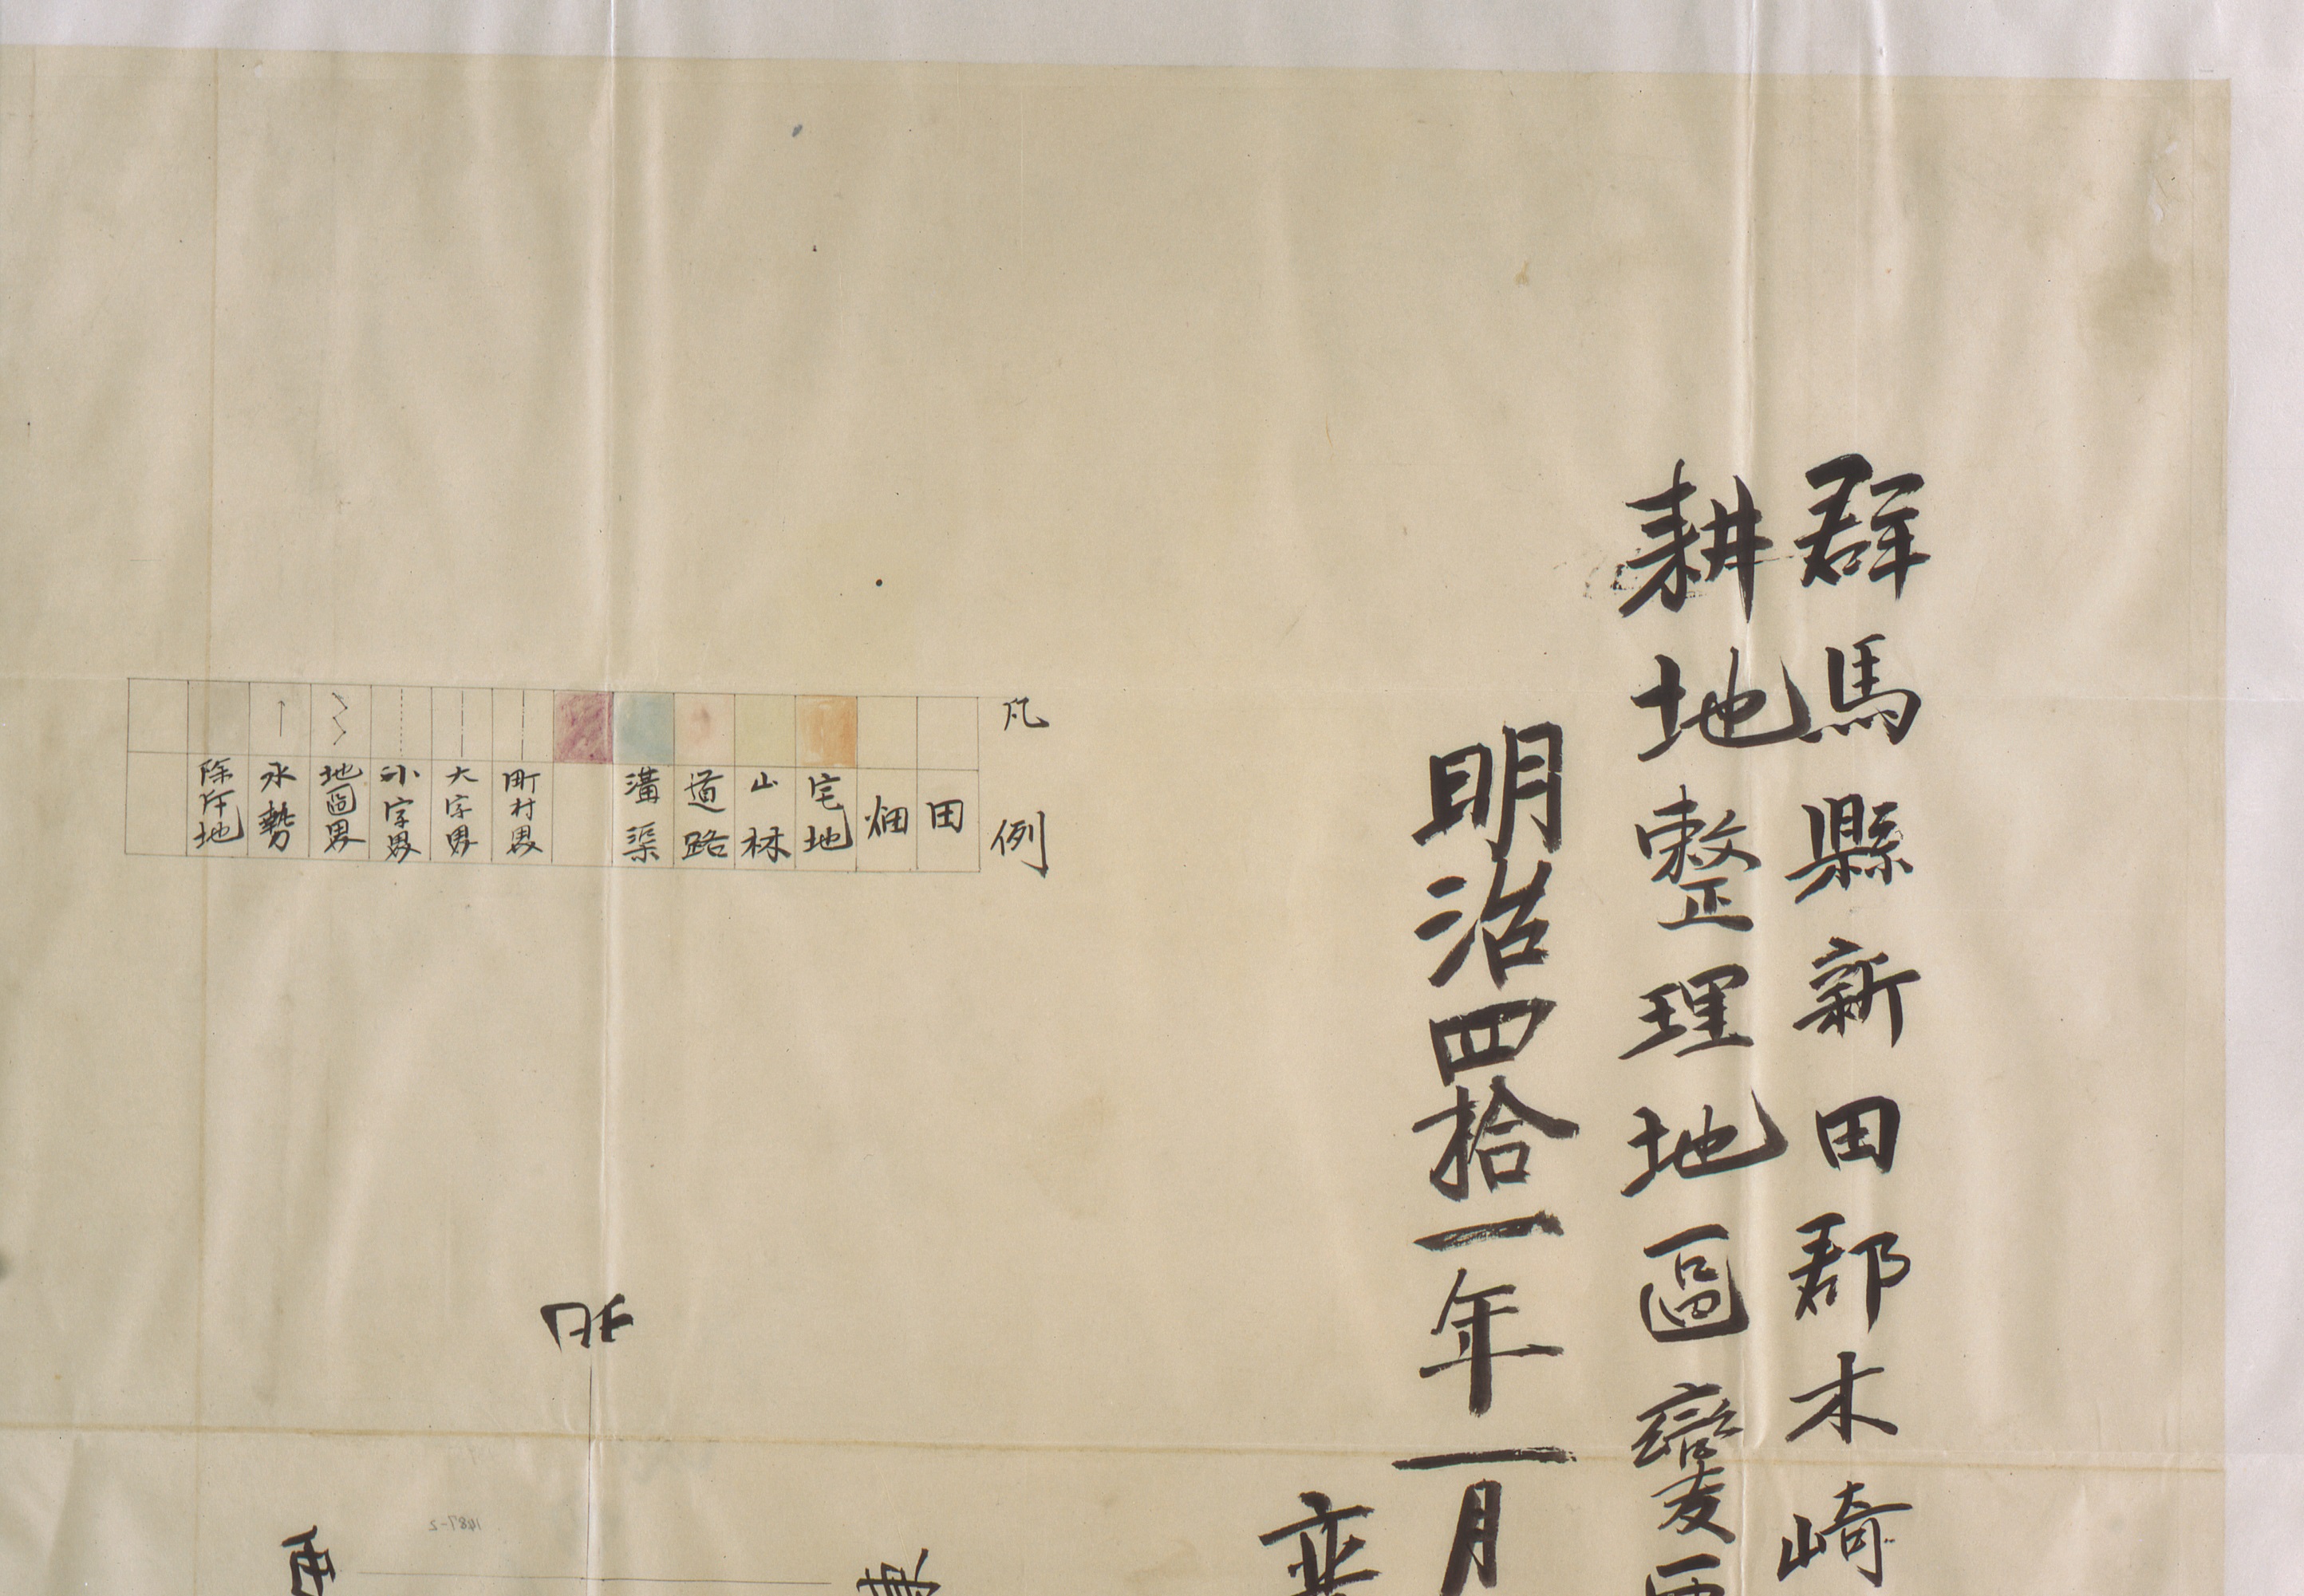 群馬縣新田郡木崎
耕地整理地區變更
明治四拾一年一月
凡例
田
畑
宅地
山林
道路
溝渠
町村界
大字界
小字界
地區界
水勢
除斥地
北
西
東
1487-2